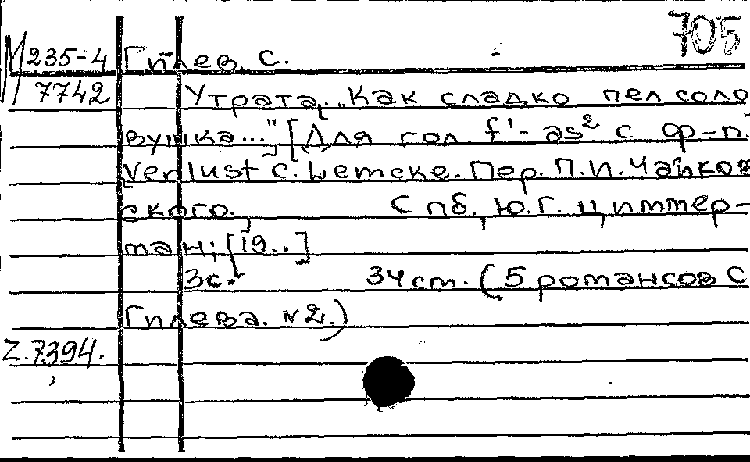 705
М 235-4 Гилев, С.
7742 Утрата. „Как сладко пел соло
вушка...", [Для гол f'- as² с ф-п.]
Verlust с. Lemcke. Пер. П.И. Чайков
ского. Спб., Ю.Г. Циммер-
ман, [19..]
3с. 34 ст. (5 романсов С
Гилева. №2.)
Z.7394.